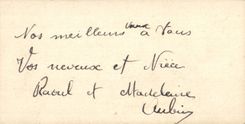 Nos meilleurs vœux à Vous
Vos neveux et Nièce
Raoul et Madeleine
Aubin